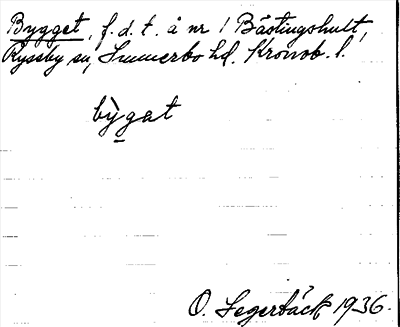 Bygget, f.d.t. å nr 1 Båstingshult,
Ryssby sn, Sunnerbo hd. Kronob. l.
bỳgat
O. Segerbäck 1936.